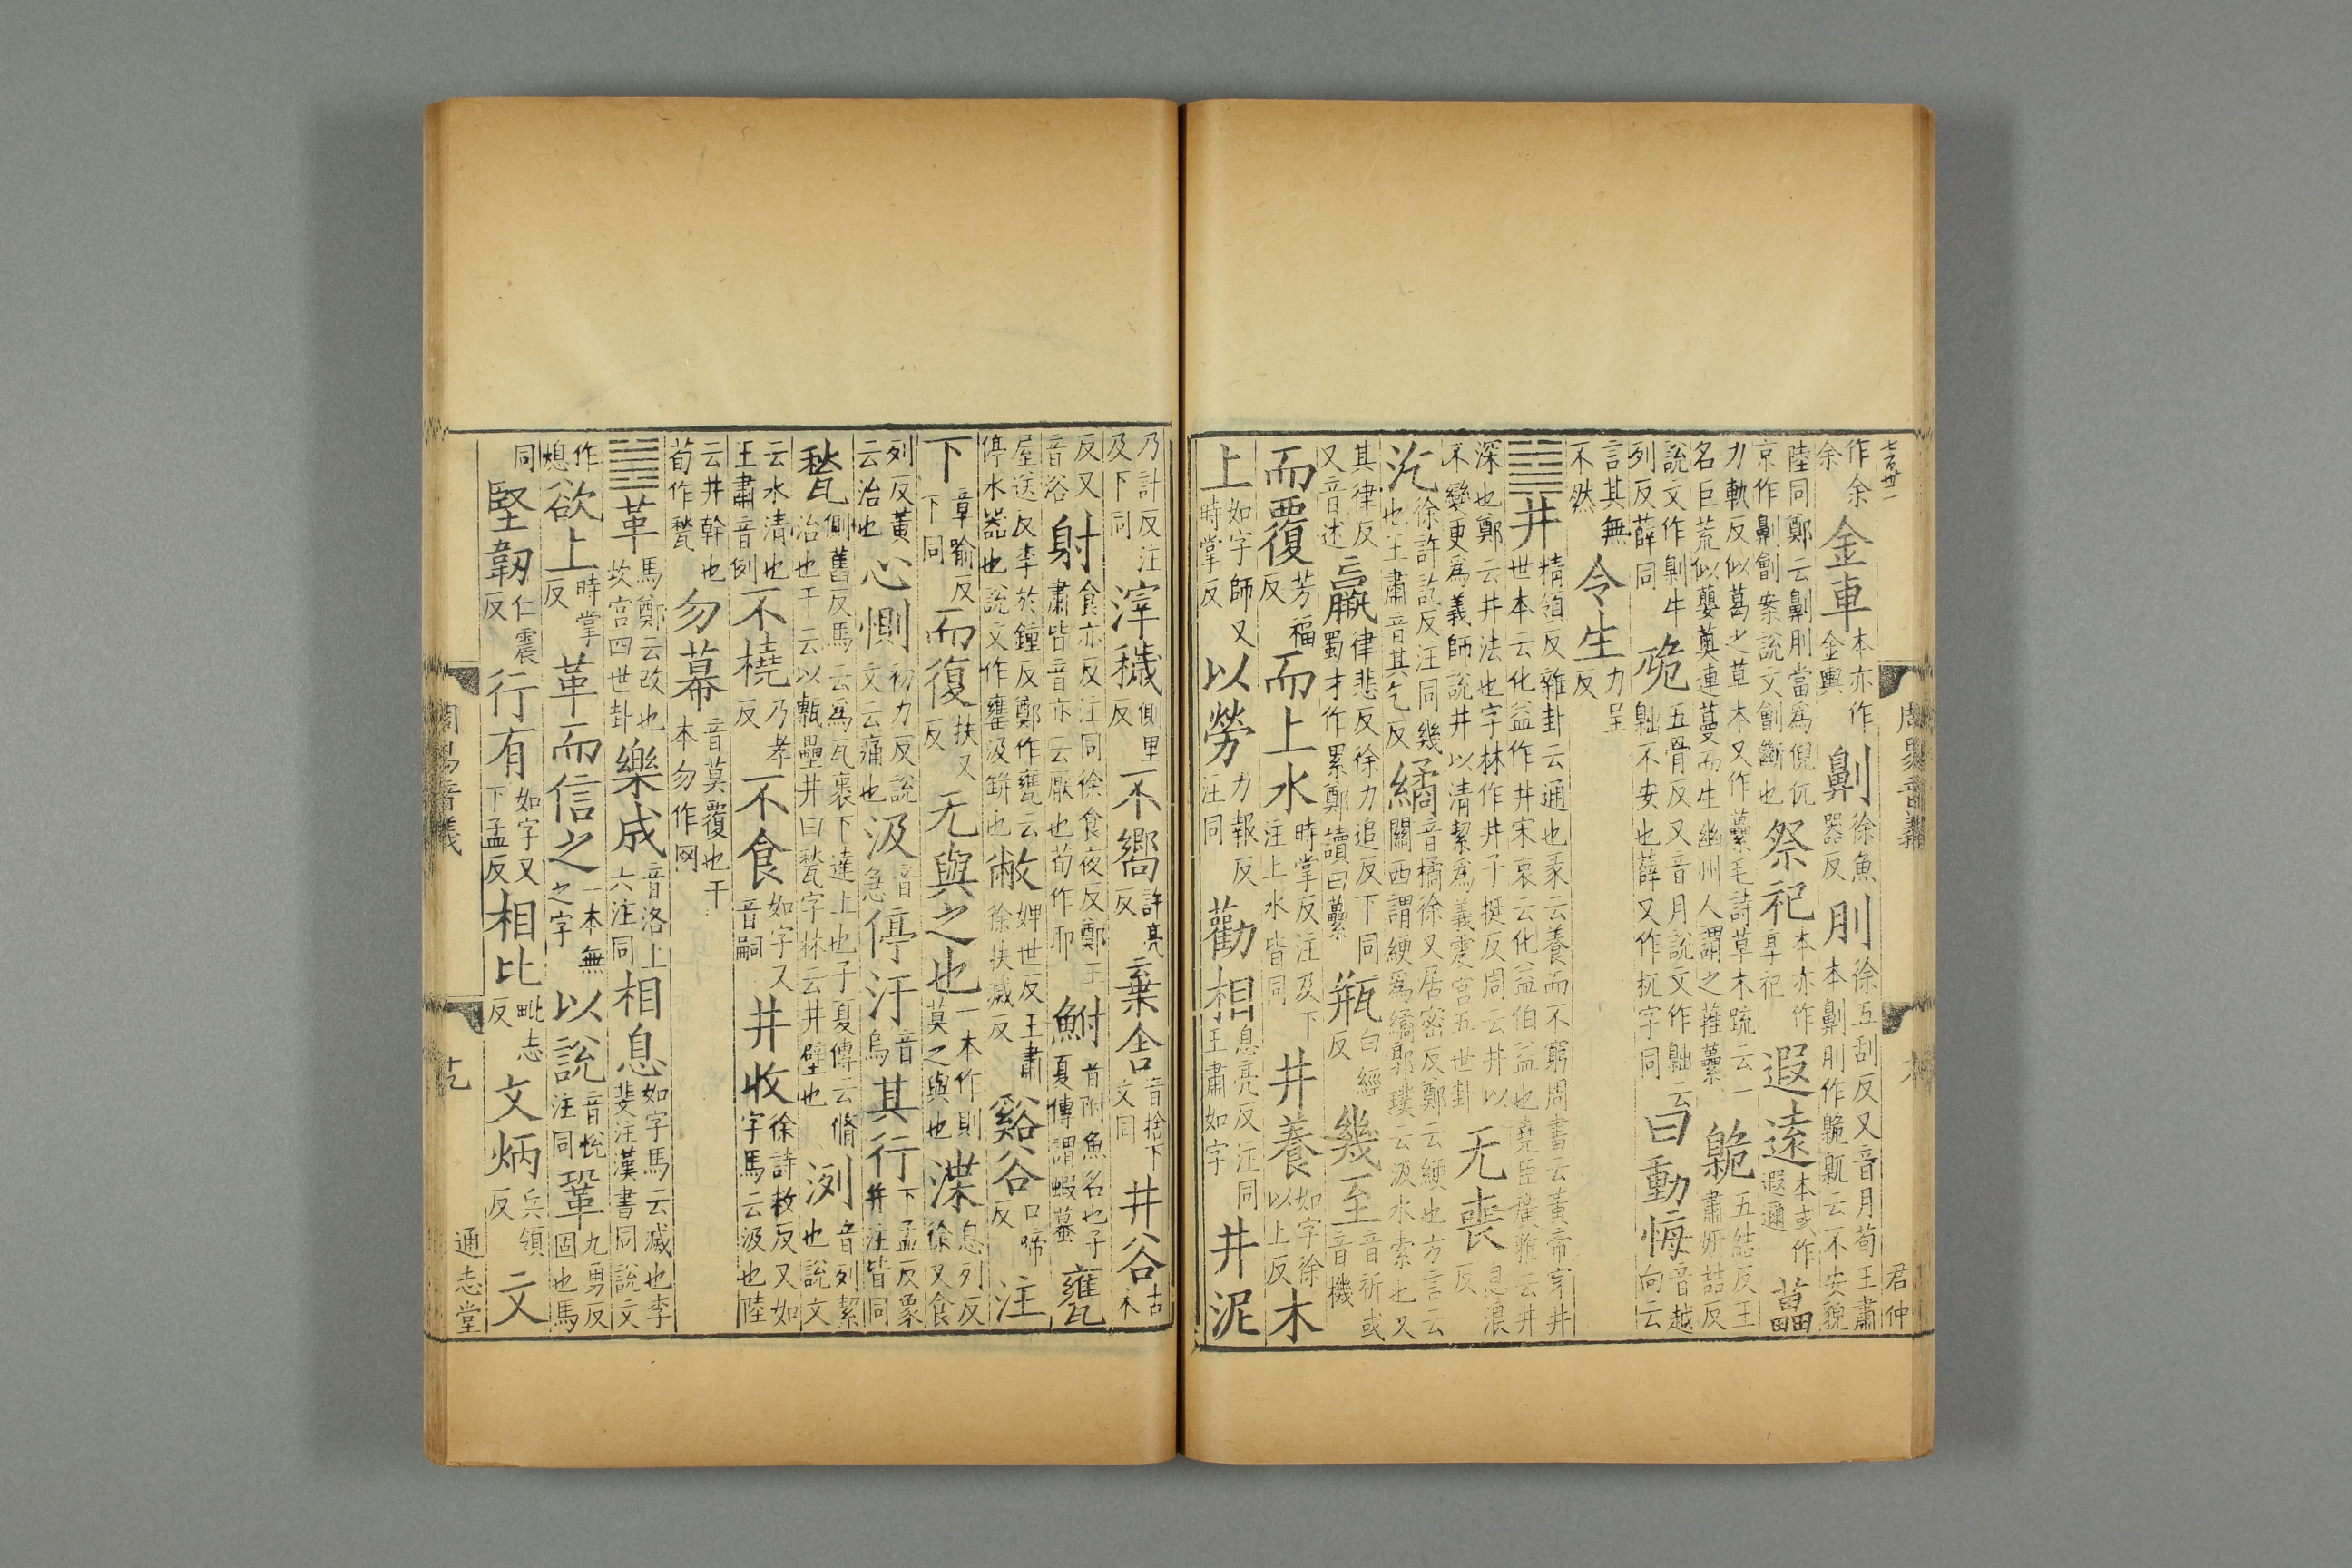 作余余金車本亦作金輿劓徐魚器反刖徐五刮反又音月荀王肅本劓刖作臲𠨜云不安貌
陸同鄭云劓刖當爲倪㐳京作劓劊案說文劊斷也祭祀本亦作享祀遐遠本或作遐邇藟
力軌反似葛之草本又作蘽毛詩草木疏云一名巨荒似蘡薁連蔓而生幽州人謂之蓷蘽臲五結反王肅妍喆反
說文作㓷牛列反薛同卼五骨反又音月說文作𡰈云𡰈不安也薛又作杌字同曰動悔音越向云
言其無不然令生力呈反
䷯井精領反雜卦云通也彖云養而不窮周書云黃帝穿井世本云化益作井宋衷云化益伯益也堯臣廣雅云井
深也鄭云井法也字林作丼子挺反周云井以不變更爲義師說井以清絜爲義震宮五世卦无喪息浪反
汔徐許訖反注同幾也王肅音其乞反繘音橘徐又居密反鄭云綆也方言云關西謂綆爲繘郭璞云汲水索也又
其律反又音述羸律悲反徐力追反下同蜀才作累鄭讀曰虆瓶白經反幾至音祈或音機
而覆芳福反而上水時掌反注及下注上水皆同井養如字徐以上反木
上如字師又時掌反以勞力報反注同勸相息亮反注同王肅如字井泥
乃計反注及下同滓穢側里反不嚮許亮反棄舍音捨下文同井谷古木
反又音浴射食亦反注同徐食夜反鄭王肅皆音亦云厭也荀作耶鮒音附魚名也子夏傳謂蝦蟇甕
屋送反李於鍾反鄭作甕云停水器也說文作罋汲缾也敝婢世反王肅徐扶滅反谿谷口啼反注
下章喻反下同而復扶又反无與之也一本作則莫之與也渫息列反徐又食
列反黃云治也心惻初力反說文云痛也汲音急停汙音烏其行下孟反象井注皆同
甃側舊反馬云爲瓦裹下達上也子夏傳云脩治也干云以甎壘井曰甃字林云井壁也洌音列絜也說文
云水清也王肅音例不橈乃孝反不食如字又音嗣井收徐詩救反又如字馬云汲也陸
云井幹也荀作甃勿幕音莫覆也干本勿作网
䷰革馬鄭云改也坎宮四世卦樂成音洛上六注同相息如字馬云滅也李斐注漢書同說文
作熄欲上時掌反革而信之一本無之字以說音悅注同鞏九勇反固也馬
同堅韌仁震反行有如字又下孟反相比毗志反文炳兵領反文
周易音義
君仲
周易音義
通志堂